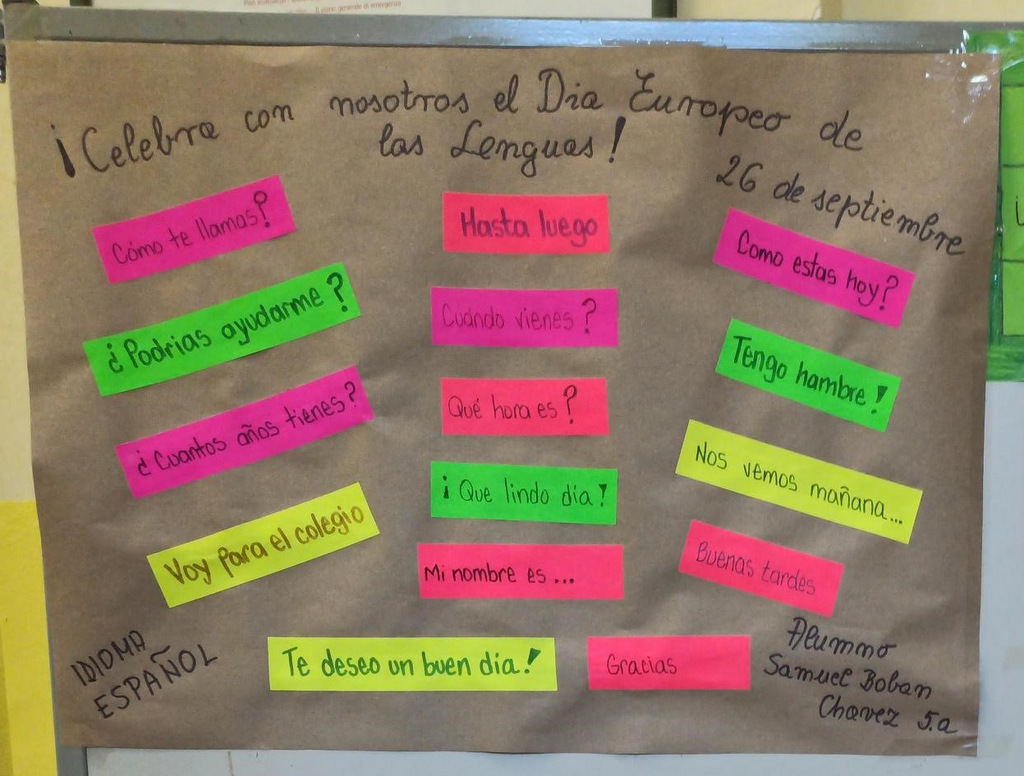 Il piano generale di emergenza
¡Celebra con nosotros el Dia Europeo de
las Lenguas!
26 de septiembre
Cómo te llamas?
¿Podrias ayudarme?
¿Cuantos años tienes?
Voy para el colegio
Hasta luego
Cuándo vienes?
Qué hora es?
¡Que lindo dia!
Mi nombre es...
Como estas hoy?
Tengo hambre!
Nos vemos mañana...
Buenas tardes
Te deseo un buen dia!
Gracias
IDIOMA
ESPAÑOL
Alumno
Samuel Boban
Chavez 5.a